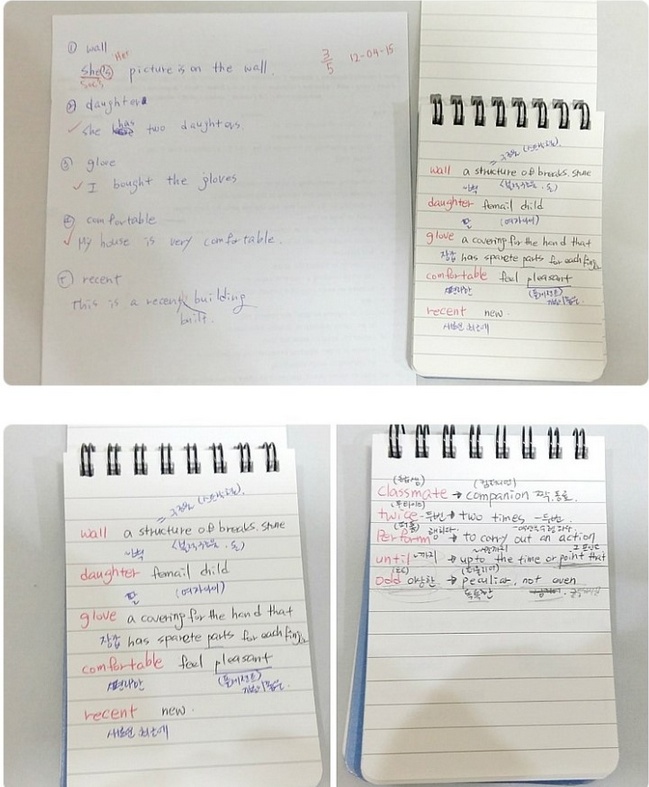 ① wall
Her
She's picture is on the wall.
She's
3/5
12-04-15
② daughter
She has two daughters.
③ glove
I bought the gloves
④ comfortable
My house is very comfortable.
⑤ recent
This is a recently building
built.
wall a structure of breaks. stone
daughter femail child
딸 (여자아이)
glove a covering for the hand that
장갑 has sparete parts for each fing
comfortable feel pleasant
편리한
recent new.
새로운 최근에
wall a structure of breaks. stone
daughter femail child
딸 (여자아이)
glove a covering for the hand that
장갑 has sparete parts for each fing
comfortable feel pleasant
편리한
recent new.
새로운 최근에
classmate → companion 짝, 동료.
twice 두번 → two times 두번.
Perform → to carry out an action
until 까지 → upto the time or point that
Odd 이상한 → peculiar, not even
독특한